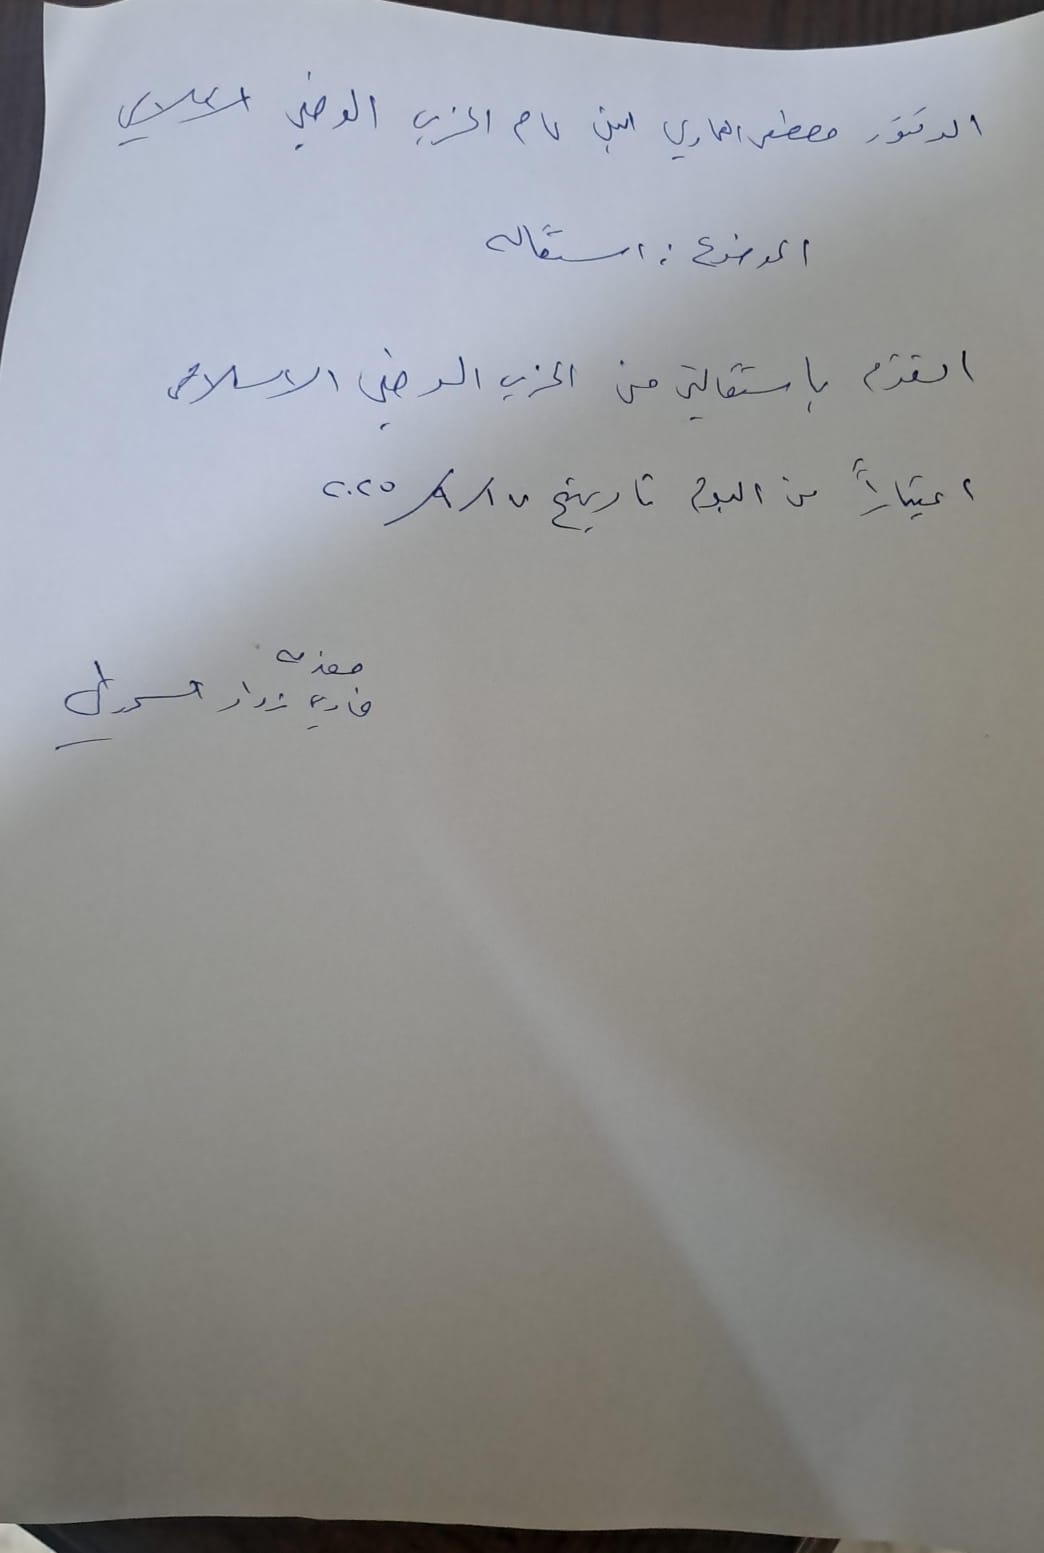 الدكتور مصطفى العماوي امين عام الحزب الوطني الاسلامي
الموضوع : استقاله
اتقدم بإستقالتي من الحزب الوطني الاسلامي
اعتباراً من اليوم تاريخ ١٧/٨/٢٠٢٥
مقدمه